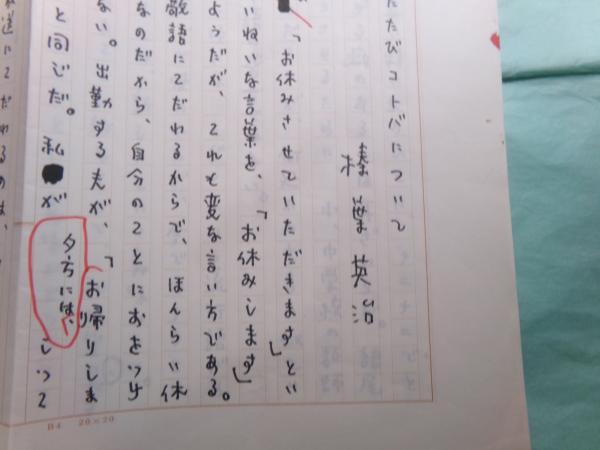 たたびコトバについて
榛葉英治
「お休みさせていただきます」とい
いねいな言葉を、「お休みします」
ようだが、これも変な言い方である。
敬語にこだわるからで、ほんらい休
なのだから、自分のことにおをつけ
ない。出勤する夫が、「お帰りしま
夕方には、
と同じだ。私が しつこ
送にこだわるのは、
B4 20×20